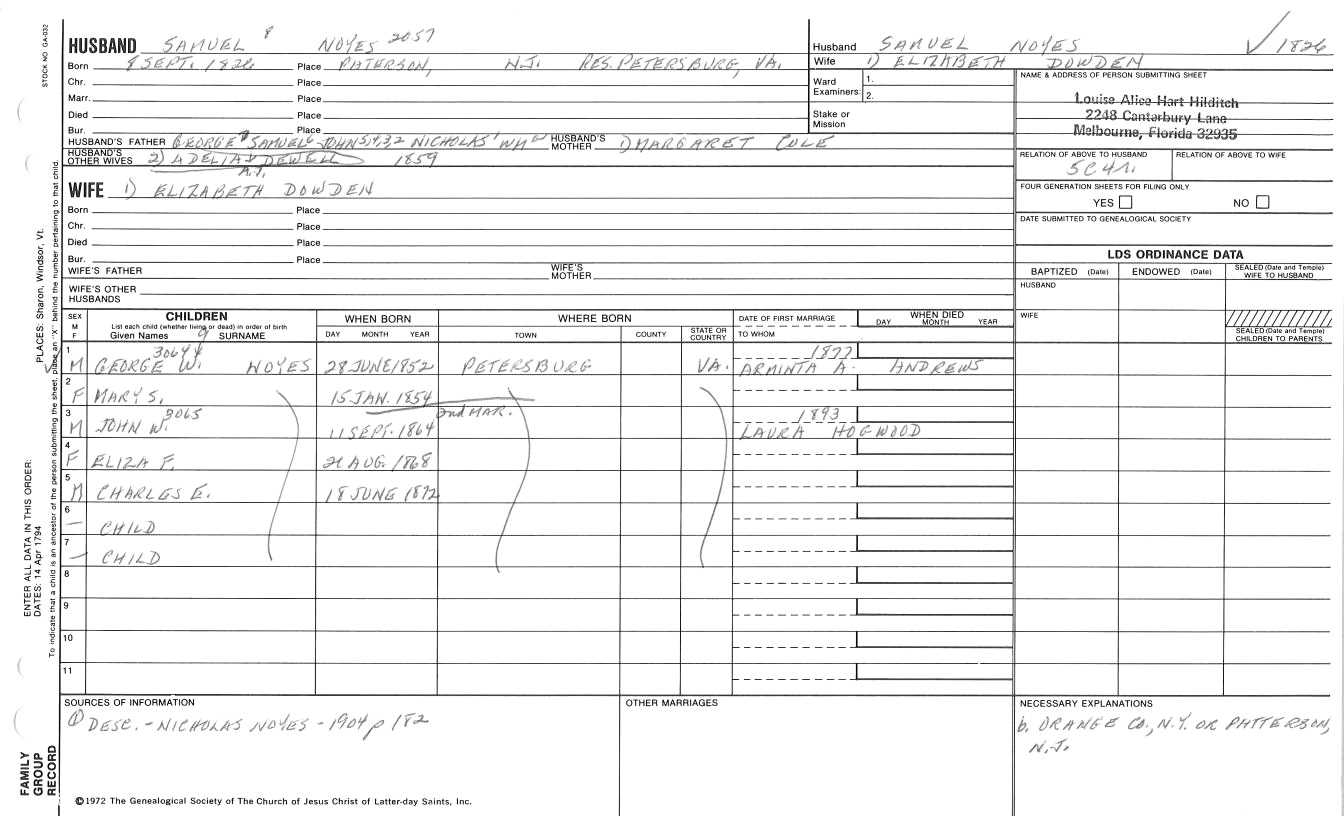 STOCK NO GA-032
HUSBAND SAMUEL 8 NOYES 2057
Born 8 SEPT. 1826 Place PATERSON, N.J. RES. PETERSBURG, VA.
Chr. Place
Marr. Place
Died Place
Bur. Place
HUSBAND'S FATHER GEORGE 7 SAMUEL 6 JOHN 5,4,3,2 NICHOLAS 1 HUSBAND'S MOTHER 1) MARGARET COLE
HUSBAND'S OTHER WIVES 2) ADELIA DEWELL 1859
A.J.
WIFE 1) ELIZABETH DOWDEN
Born Place
Chr. Place
Died Place
Bur. Place
WIFE'S FATHER WIFE'S MOTHER
WIFE'S OTHER HUSBANDS
Husband SAMUEL NOYES ✓ 1826
Wife 1) ELIZABETH DOWDEN
Ward Examiners: 1. 2.
Stake or Mission
NAME & ADDRESS OF PERSON SUBMITTING SHEET
Louise Alice Hart Hilditch
2248 Canterbury Lane
Melbourne, Florida 32935
RELATION OF ABOVE TO HUSBAND RELATION OF ABOVE TO WIFE
5C4R.
FOUR GENERATION SHEETS FOR FILING ONLY
YES NO
DATE SUBMITTED TO GENEALOGICAL SOCIETY
LDS ORDINANCE DATA
BAPTIZED (Date) ENDOWED (Date) SEALED (Date and Temple) WIFE TO HUSBAND
HUSBAND
WIFE
SEALED (Date and Temple) CHILDREN TO PARENTS
SEX M F CHILDREN WHEN BORN WHERE BORN DATE OF FIRST MARRIAGE WHEN DIED
List each child (whether living or dead) in order of birth
Given Names 9 SURNAME DAY MONTH YEAR TOWN COUNTY STATE OR COUNTRY TO WHOM DAY MONTH YEAR
3064 1877
1 M GEORGE W. NOYES 28 JUNE 1852 PETERSBURG VA. ARMINTA A. ANDREWS
2 F MARY S. 15 JAN. 1854
2nd MAR.
3065 1893
3 M JOHN W. 11 SEPT. 1864 LAURA HOGWOOD
4 F ELIZA F. 21 AUG. 1868
5 M CHARLES E. 18 JUNE 1872
6 – CHILD
7 – CHILD
8
9
10
11
SOURCES OF INFORMATION
① DESC. - NICHOLAS NOYES - 1904 p 182
OTHER MARRIAGES
NECESSARY EXPLANATIONS
b. ORANGE CO., N.Y. OR PATTERSON,
N.J.
©1972 The Genealogical Society of The Church of Jesus Christ of Latter-day Saints, Inc.
FAMILY
GROUP
RECORD
ENTER ALL DATA IN THIS ORDER:
DATES: 14 Apr 1794
PLACES: Sharon, Windsor, Vt.
To indicate that a child is an ancestor of the person submitting the sheet, place an "X" behind the number pertaining to that child.